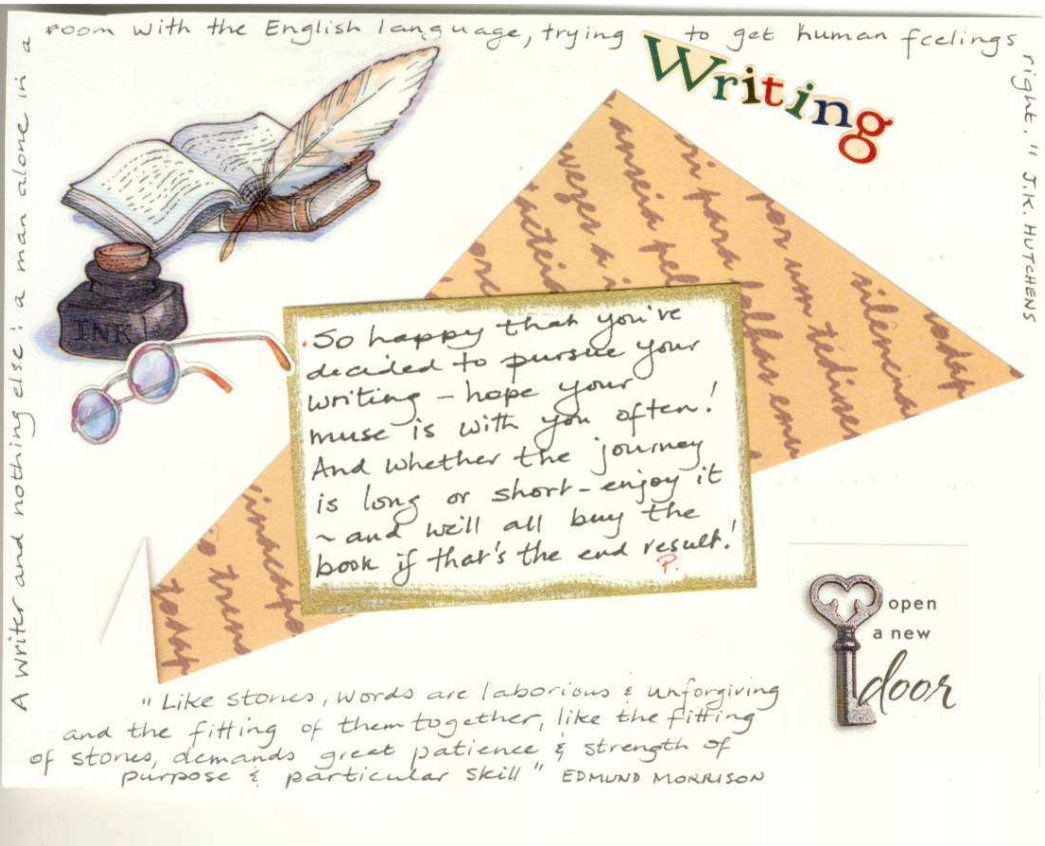 A writer and nothing else: a man alone in a
room with the English language, trying to get human feelings
right." J.K. HUTCHENS
Writing
INK
So happy that you've
decided to pursue your
writing - hope your
muse is with you often!
And whether the journey
is long or short - enjoy it
~ and we'll all buy the
book if that's the end result!
P.
open
a new
door
"Like stones, words are laborious & unforgiving
and the fitting of them together, like the fitting
of stones, demands great patience & strength of
purpose & particular skill" EDMUND MORRISON